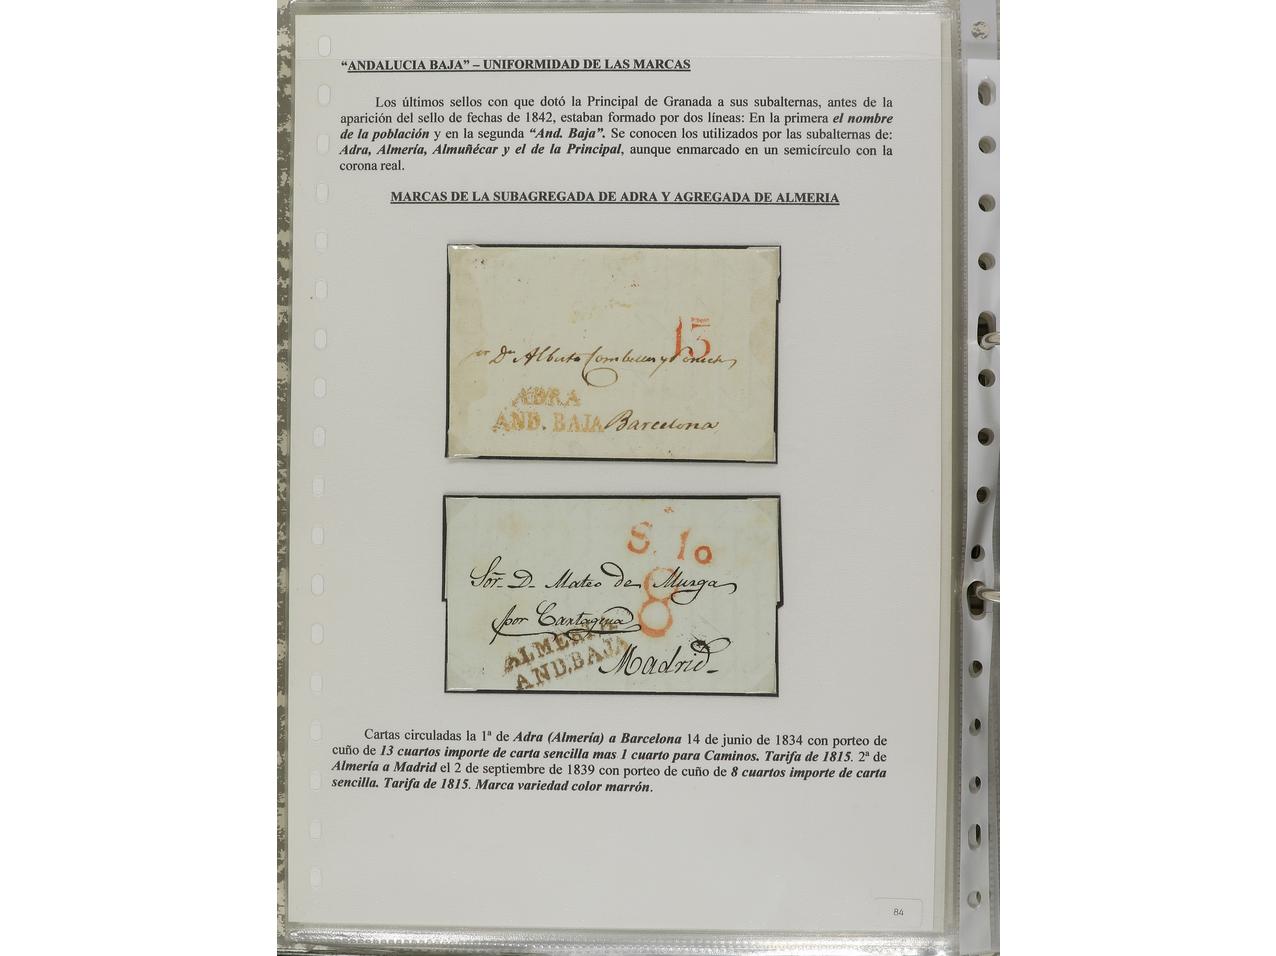 “ANDALUCIA BAJA” – UNIFORMIDAD DE LAS MARCAS
Los últimos sellos con que dotó la Principal de Granada a sus subalternas, antes de la
aparición del sello de fechas de 1842, estaban formado por dos líneas: En la primera el nombre
de la población y en la segunda “And. Baja”. Se conocen los utilizados por las subalternas de:
Adra, Almería, Almuñécar y el de la Principal, aunque enmarcado en un semicírculo con la
corona real.
MARCAS DE LA SUBAGREGADA DE ADRA Y AGREGADA DE ALMERIA
13
Dn Alberto
ADRA
AND. BAJA Barcelona
S. 1o
8
Sor. D. Mateo de Murga
por Cartagena
ALMERIA
AND. BAJA
Madrid
Cartas circuladas la 1ª de Adra (Almería) a Barcelona 14 de junio de 1834 con porteo de
cuño de 13 cuartos importe de carta sencilla mas 1 cuarto para Caminos. Tarifa de 1815. 2ª de
Almería a Madrid el 2 de septiembre de 1839 con porteo de cuño de 8 cuartos importe de carta
sencilla. Tarifa de 1815. Marca variedad color marrón.
84